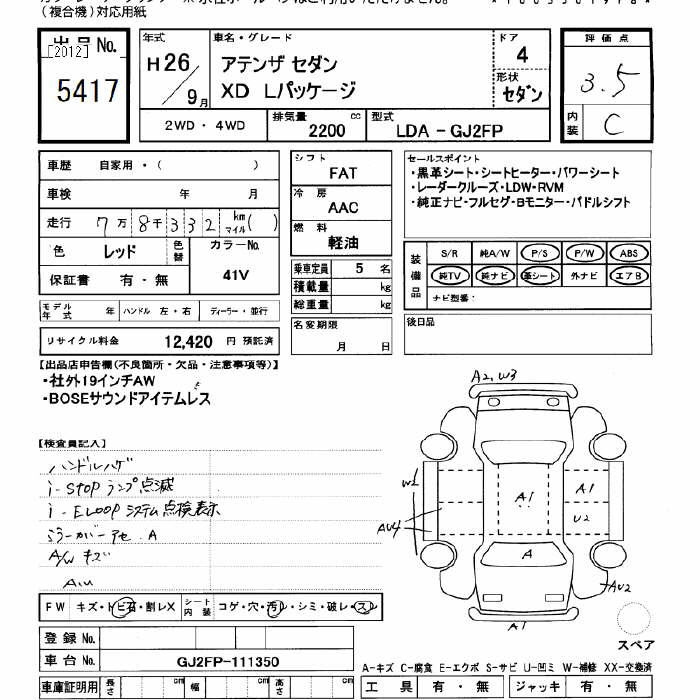 (複合機)対応用紙
出品No.
[2012]
5417
年式
H26/9月
車名・グレード
アテンザ セダン
XD Lパッケージ
ドア
4
形状
セダン
評価点
3.5
内装
C
2WD・4WD
排気量
2200
cc
型式
LDA - GJ2FP
車歴 自家用・( )
車検 年 月
走行 7万8千332 km マイル( )
色 レッド 色替
カラーNo.
41V
保証書 有・無
シフト
FAT
冷房
AAC
燃料
軽油
乗車定員 5 名
積載量 kg
総重量 kg
セールスポイント
・黒革シート・シートヒーター・パワーシート
・レーダークルーズ・LDW・RVM
・純正ナビ・フルセグ・Bモニター・パドルシフト
装備品
S/R 純A/W P/S P/W ABS
純TV 純ナビ 革シート 外ナビ エアB
ナビ型番:
モデル年式 年 ハンドル 左・右 ディーラー・並行
リサイクル料金 12,420 円 預託済
名変期限
月 日
後日品
【出品店申告欄(不良箇所・欠品・注意事項等)】
・社外19インチAW
・BOSEサウンドアイテムレス
【検査員記入】
ハンドルハゲ
i-stop ランプ点滅
i-ELOOP システム点検表示
ミラーカバーアセ.A
A/W キズ
A2, W3
W2
AU4
A1
A1
U2
A
AU2
A1
スペア
FW キズ・トビ石・割レX シート内装 コゲ・穴・汚レ・シミ・破レ・スレ
登録No.
車台No. GJ2FP-111350
A-キズ C-腐食 E-エクボ S-サビ U-凹ミ W-補修 XX-交換済
車庫証明用 長さ cm 幅 cm 高さ cm
工具 有・無 ジャッキ 有・無